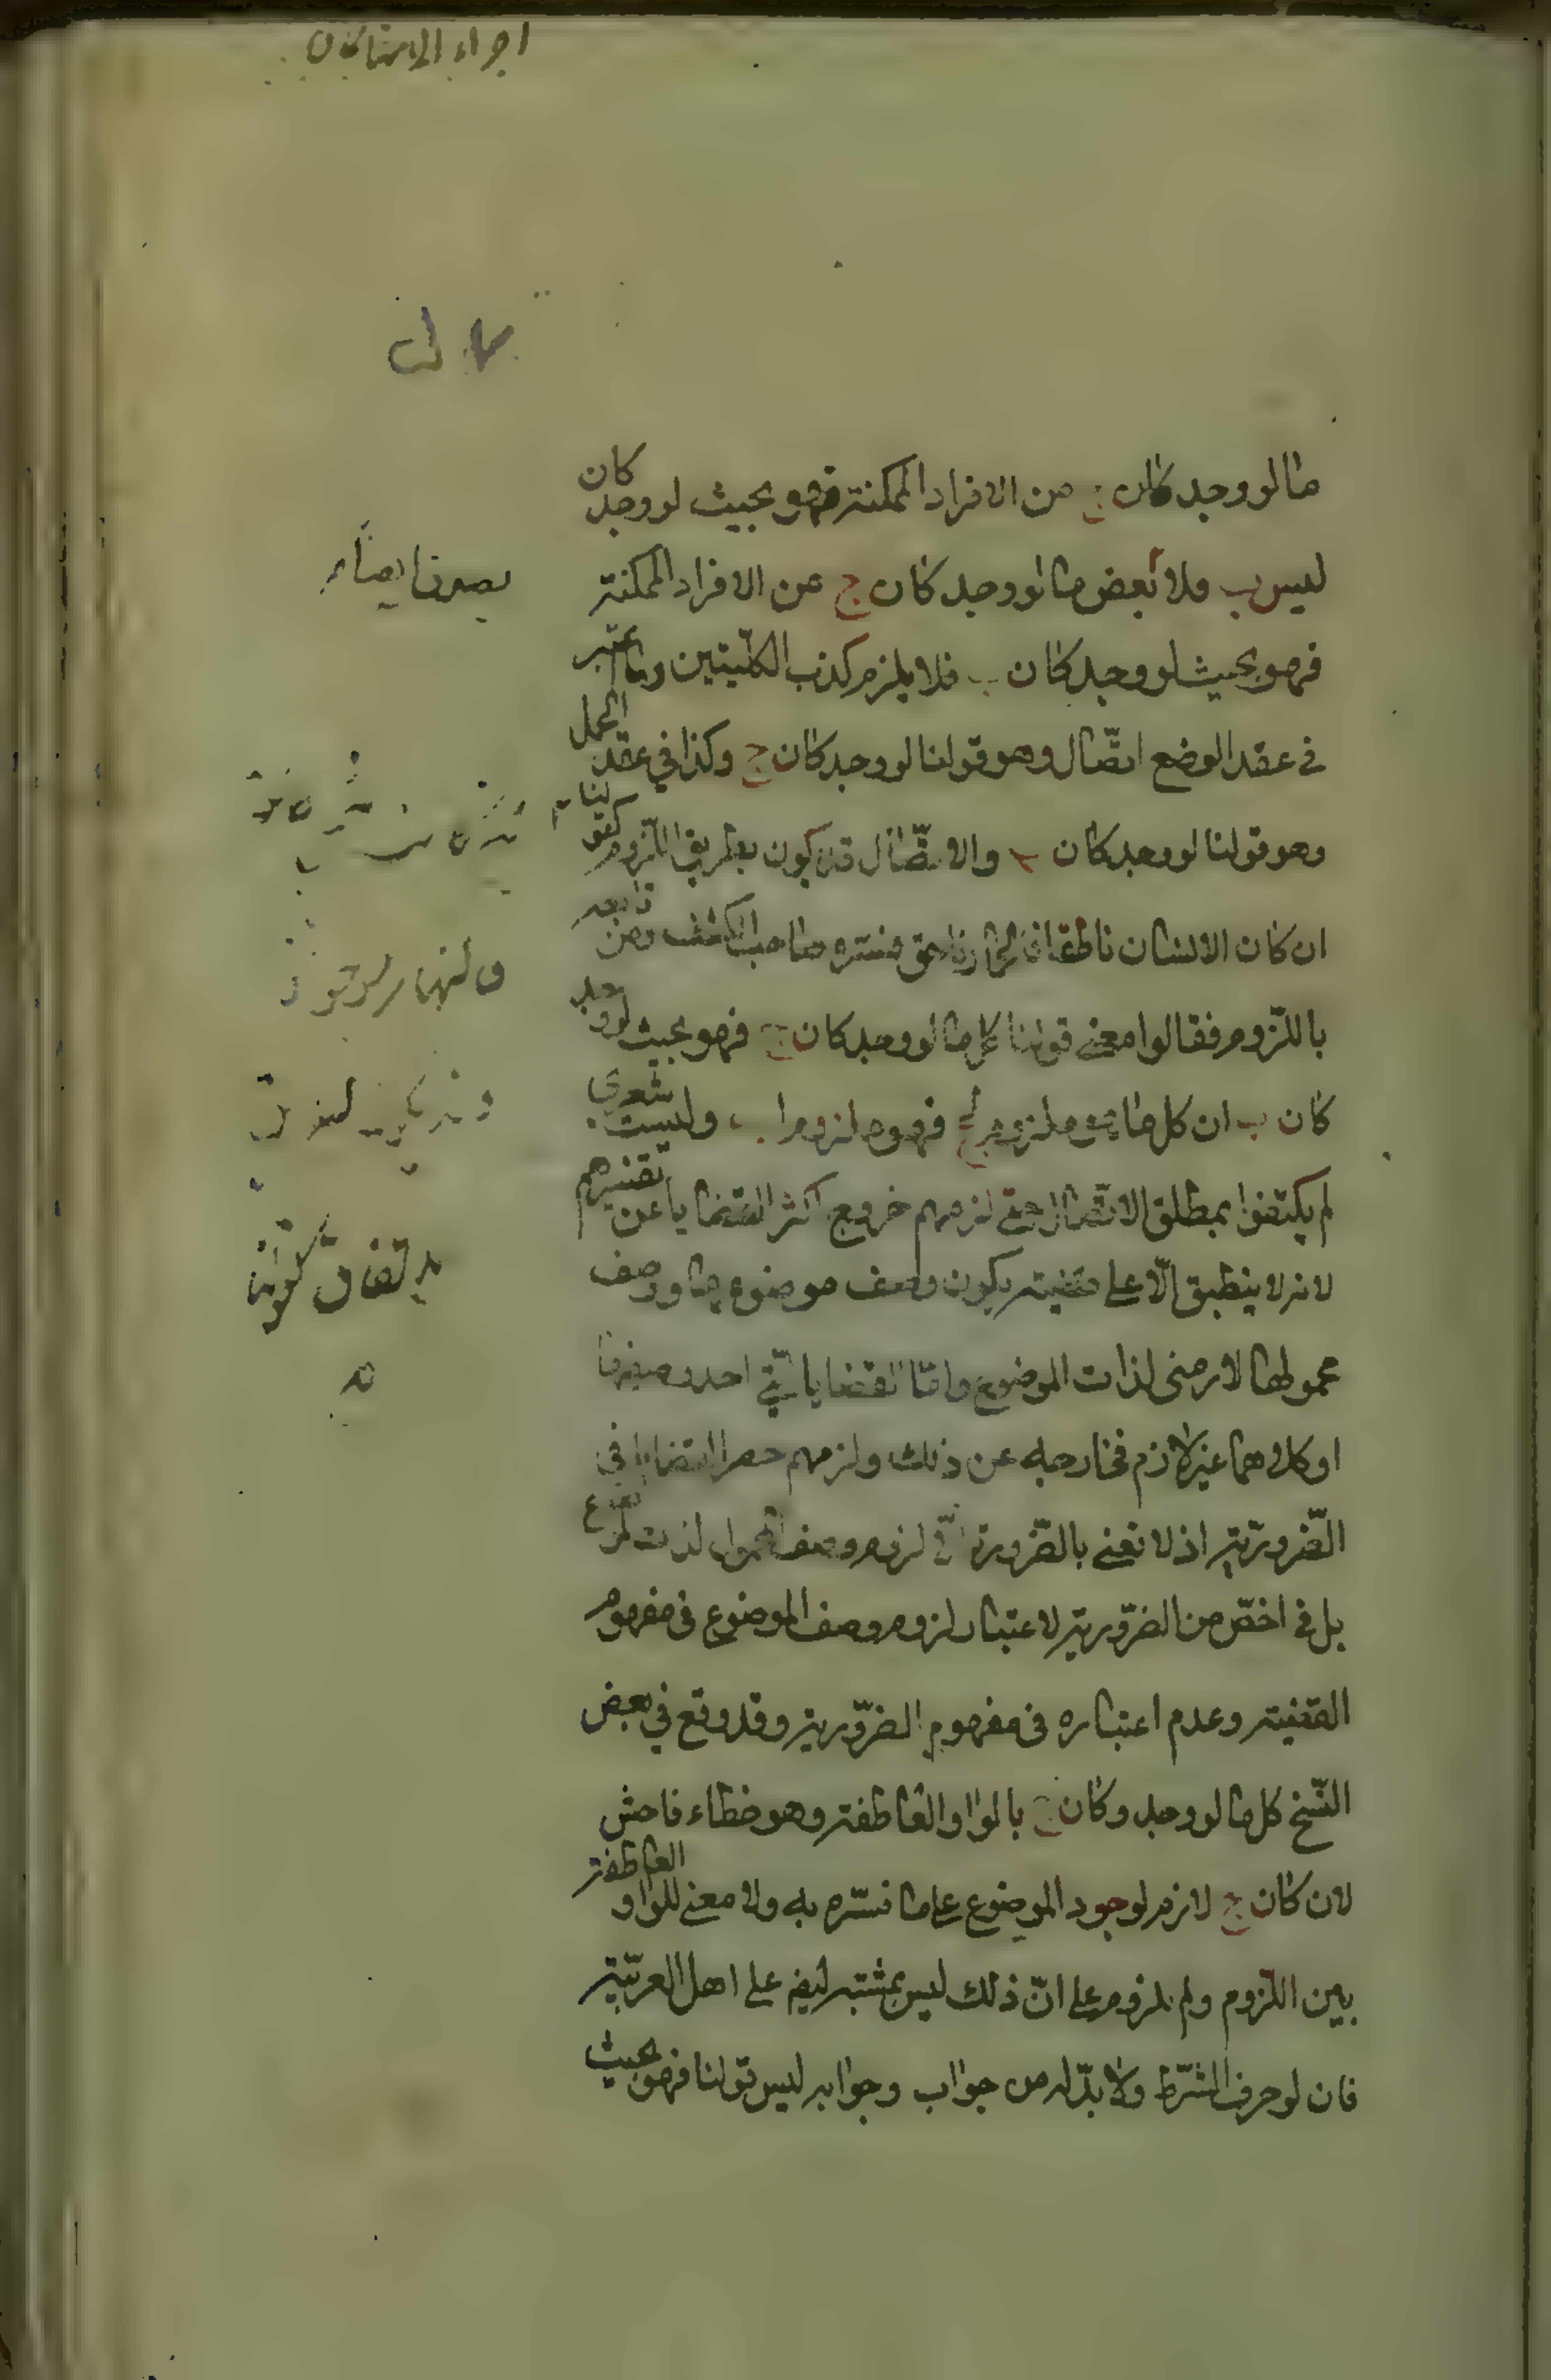 ما لو وجد كان ج من الافراد الممكنة فهو بحيث لو وجد كان
ليس ب ولا بعض ما لو وجد كان ج من الافراد الممكنة
فهو بحيث لو وجد كان ب فلا يلزم كذب الكليتين وما اعتبر
في عقد الوضع اتّصال وهو قولنا لو وجد كان ج وكذا في عقد الحمل
وهو قولنا لو وجد كان ب والاتّصال قد يكون بطريق اللّزوم كقولنا
ان كان الانسان ناطقا فالحمار ناهق فسره صاحب الكشف ومن تابعه
باللّزوم فقالوا معنى قولنا كل ما لو وجد كان ج فهو بحيث لو وجد
كان ب ان كل ما هو ملزوم لج فهو ملزوم لب وليت شعري
لم يكتفوا بمطلق الاتصال حتى لزمهم خروج اكثر القضايا عن تفسيرهم
لانه لا ينطبق الّا على قضيته يكون وصف موضوعها ووصف
محمولها لازمين لذات الموضوع وامّا القضايا الّتي احد وصفيها
او كلاهما غير لازم فخارجه عن ذلك ولزمهم حصر القضايا في
الضّروريّة اذ لا نعني بالضّرورة الّا لزوم وصف المحمول لذات الموضوع
بل في اخصّ من الضّروريّة لاعتبار لزوم وصف الموضوع في مفهوم
القضية وعدم اعتباره في مفهوم الضّروريّة وقد وقع في بعض
النّسخ كل ما لو وجد وكان ج بالواو العاطفة وهو خطاء فاحش
لان كان ج لازم لوجود الموضوع على ما فسّره به ولا معنى للواو العاطفة
بين اللّزوم والملزوم على انّ ذلك ليس بمشتبه ايضا على اهل العربيّة
فان لو حرف الشّرط ولا بدّ له من جواب وجوابه ليس قولنا فهو بحيث